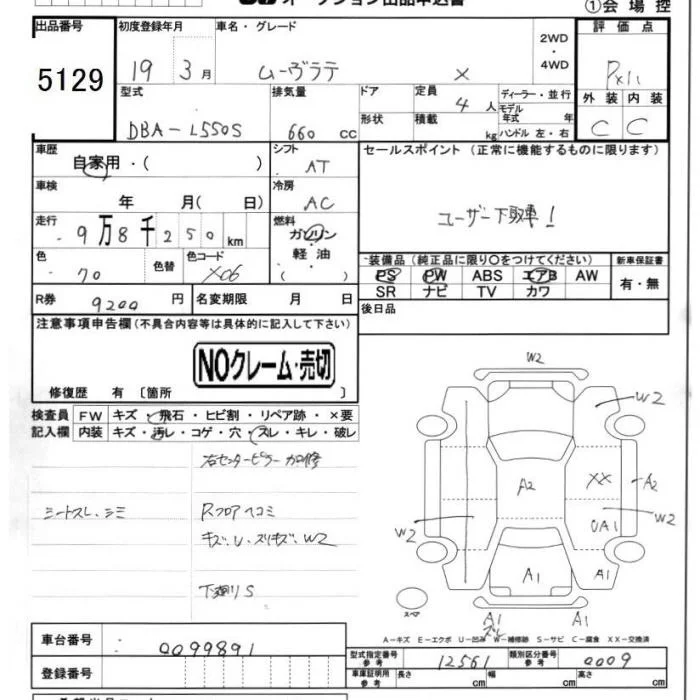 ①会場控
出品番号
5129
初度登録年月
19 3月
車名・グレード
ムーヴラテ
X
2WD・4WD
評価点
外装 内装
C C
型式
DBA-L550S
排気量
660 cc
ドア
形状
定員
4人
積載
kg
ディーラー・並行
モデル年式 年
ハンドル 左・右
車歴
自家用・( )
シフト
AT
セールスポイント(正常に機能するものに限ります)
ユーザー下取車!
車検
年 月( 日)
冷房
AC
走行
9万8千250km
燃料
ガソリン・軽油
( )
色
色替
色コード
X06
装備品(純正品に限り○をつけてください)
PS PW ABS エアB AW
SR ナビ TV カワ
新車保証書
有・無
R券
9200円
名変期限 月 日
後日品
注意事項申告欄(不具合内容等は具体的に記入して下さい)
NOクレーム・売切
修復歴 有〔箇所 〕
検査員記入欄
FW キズ・飛石・ヒビ割・リペア跡・×要
内装 キズ・汚レ・コゲ・穴・スレ・キレ・破レ
右センターピラー加修
シートスレ.シミ
Rフロアヘコミ
キズ.U.スリキズ.W2
下廻りS
W2
W2
A2
XX
A2
W2
W2
UA1
A1
A1
スペア
A1
スレ
A1
A-キズ E-エクボ U-凹み W-補修跡 S-サビ C-腐食 XX-交換済
車台番号
0099891
登録番号
型式指定番号参考
12561
類別区分番号参考
0009
車庫証明用参考
長さ cm 幅 cm 高さ cm